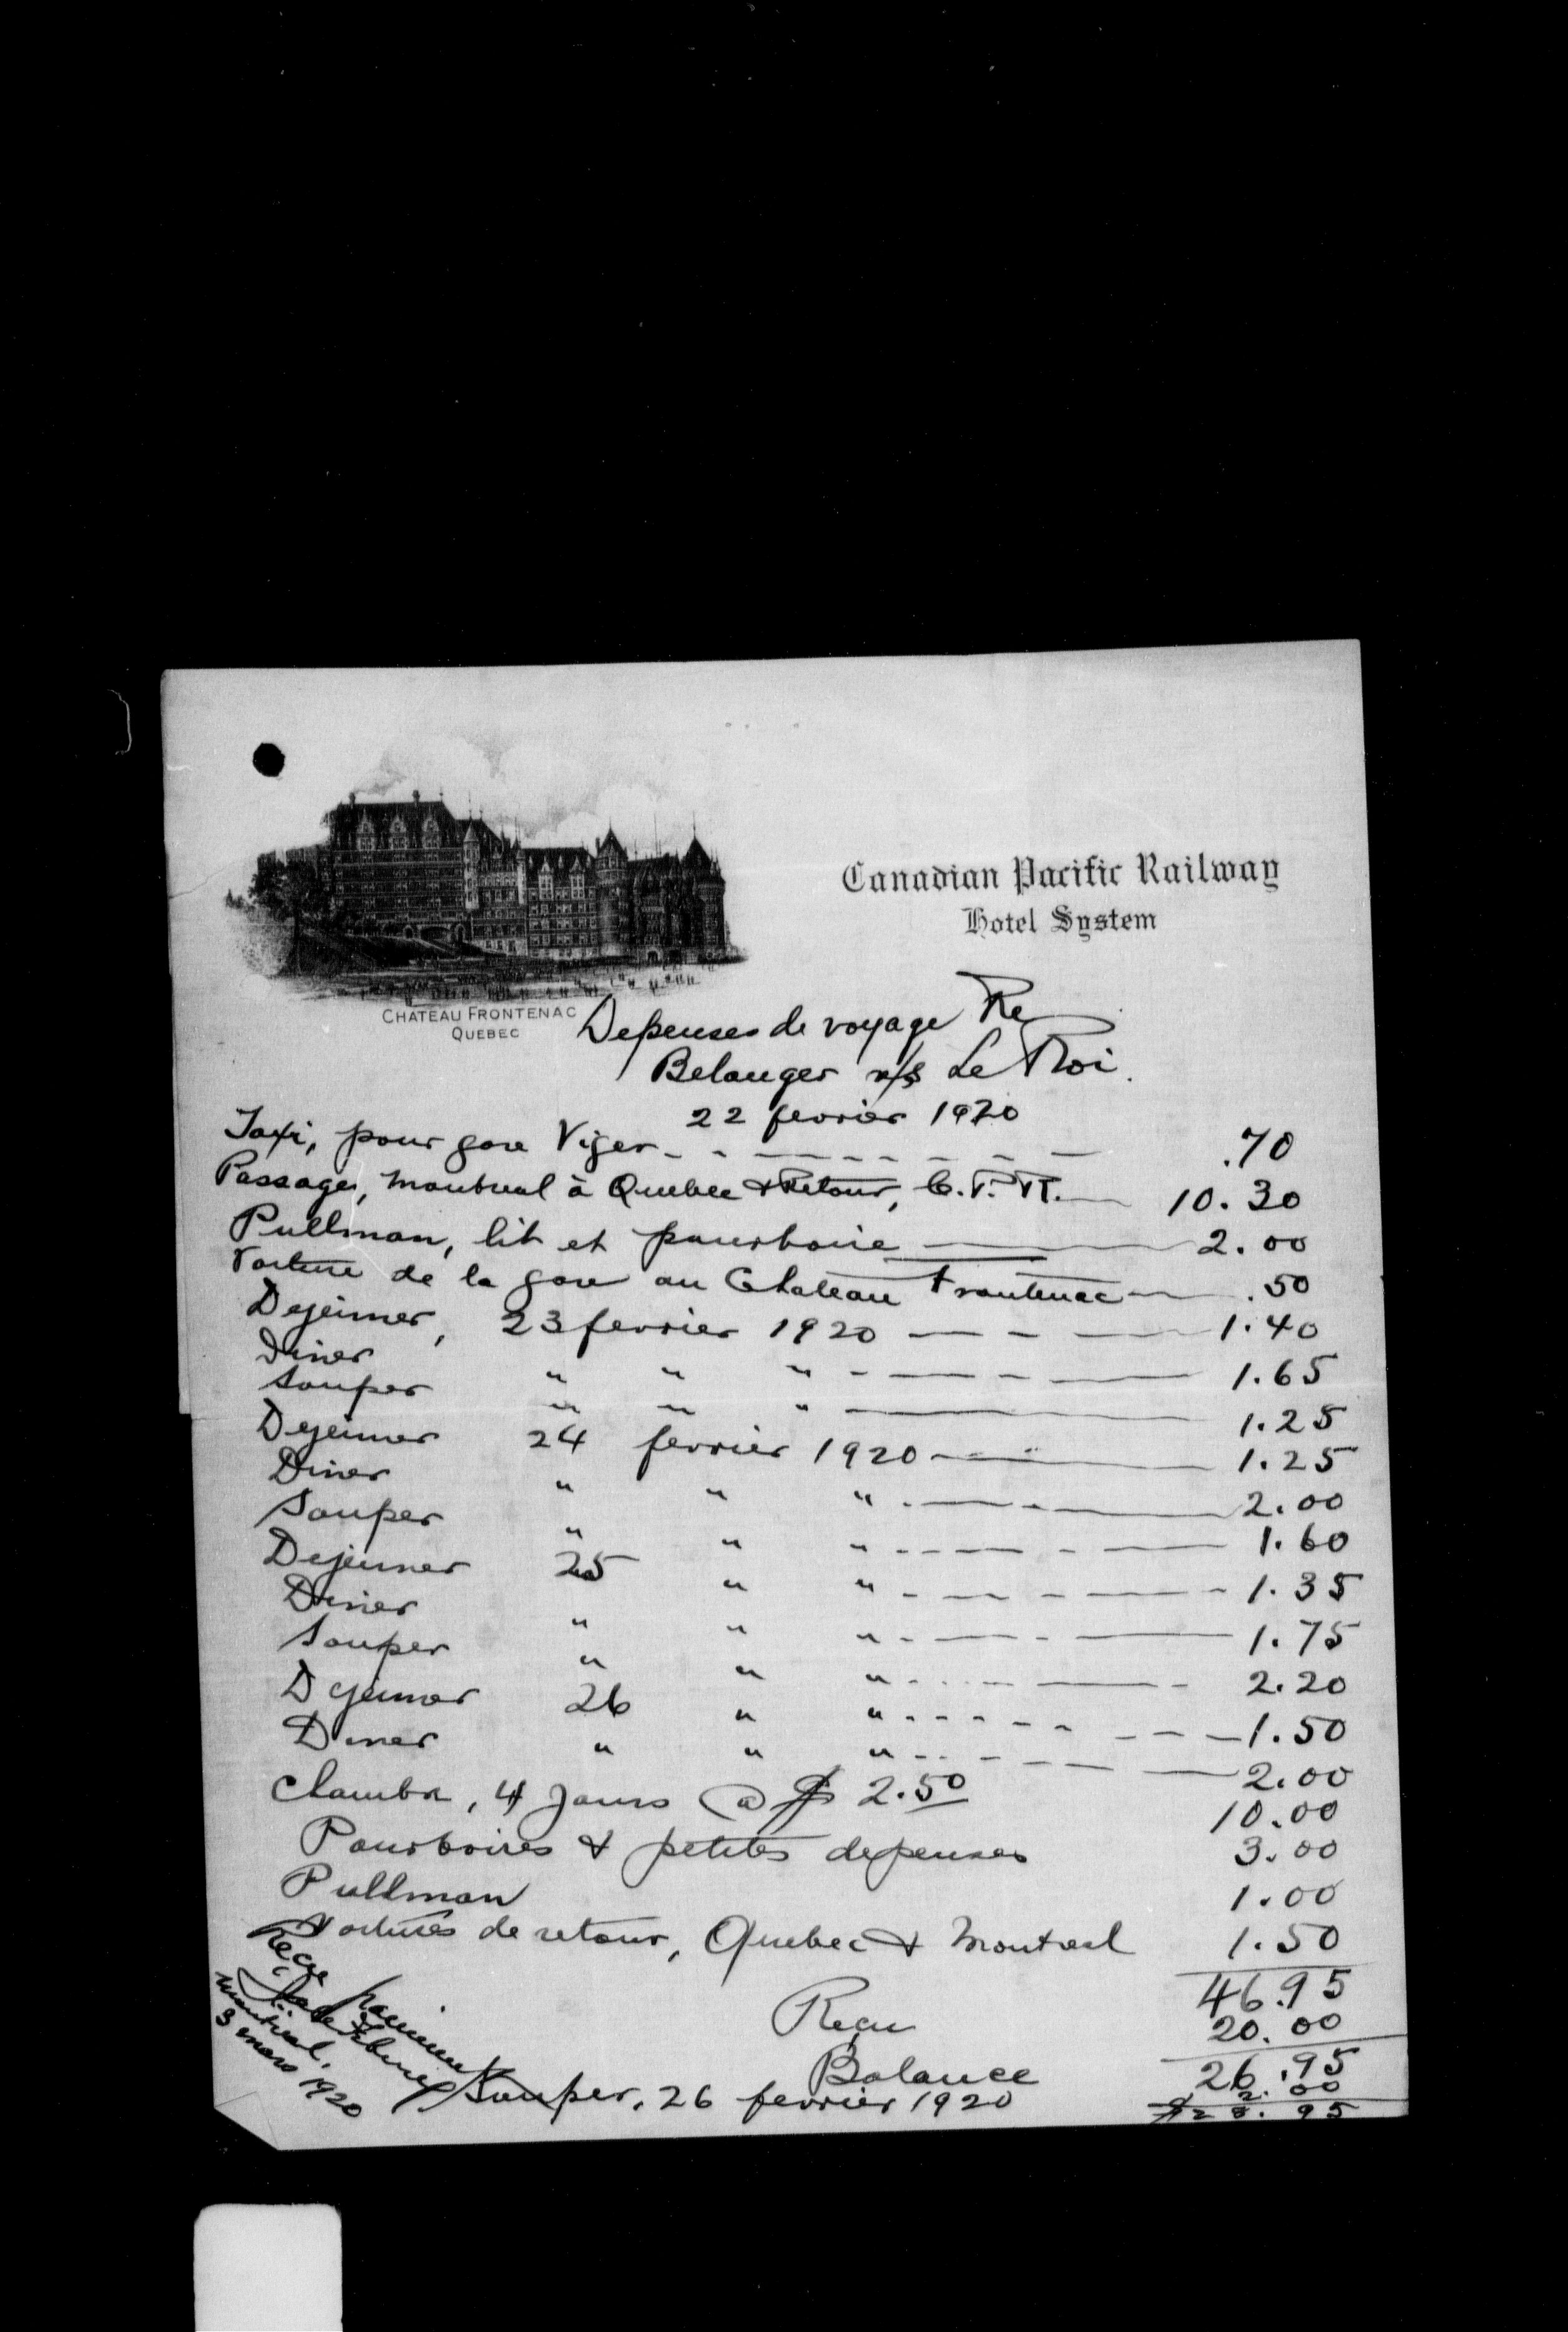 Canadian Pacific Railway
Hotel System
CHATEAU FRONTENAC
QUEBEC
Depenses de voyage Re
Belanger v/s Le Roi.
22 fevrier 1920
Taxi, pour gare Viger .70
Passage, Montreal à Quebec & Retour, C.P.R. 10.30
Pullman, lit et pourboire 2.00
Voiture de la gare au Chateau Frontenac .50
Dejeuner, 23 fevrier 1920 1.40
Diner " " " 1.65
Souper " " " 1.25
Dejeuner 24 fevrier 1920 1.25
Diner " " " 2.00
Souper " " " 1.60
Dejeuner 25 " " 1.35
Diner " " " 1.75
Souper " " " 2.20
Dejeuner 26 " " 1.50
Diner " " " 2.00
Chambre, 4 jours @ $ 2.50 10.00
Pourboires & petites depenses 3.00
Pullman 1.00
Voitures de retour, Quebec & Montreal 1.50
46.95
Recu 20.00
Balance 26.95
Souper, 26 fevrier 1920 2.00
$28.95
Reçu paiement
Montreal,
3 mars 1920